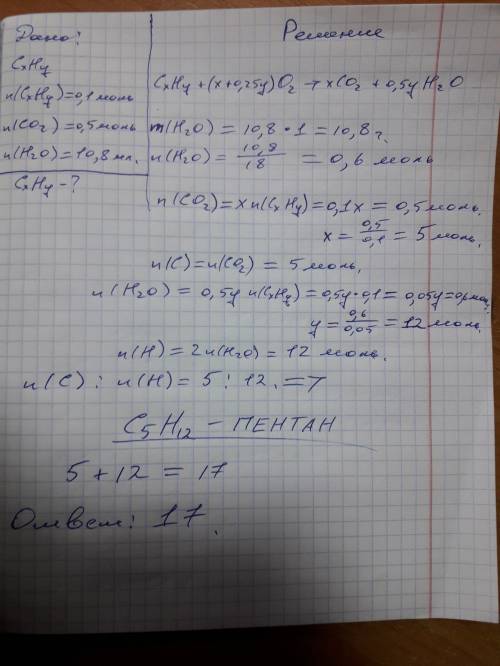 Дано:
CxHy
n(CxHy)=0,1 моль
n(CO2)=0,5моль
n(H2O)=10,8 мл.
CxHy - ?
Решение
CxHy + (x+0,25y)O2 → xCO2 + 0,5y H2O
m(H2O) = 10,8 · 1 = 10,8 г.
n(H2O) = 10,8/18 = 0,6 моль
n(CO2) = x n(CxHy) = 0,1x = 0,5 моль.
x = 0,5/0,1 = 5 моль.
n(C) = n(CO2) = 5 моль.
n(H2O) = 0,5y n(CxHy) = 0,5y·0,1 = 0,05y =
y = 0,6/0,05 = 12 моль.
n(H) = 2n(H2O) = 12 моль.
n(C) : n(H) = 5 : 12. =>
C5H12 - ПЕНТАН
5 + 12 = 17
Ответ: 17.